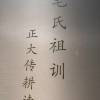 毛氏祖训
正大传耕